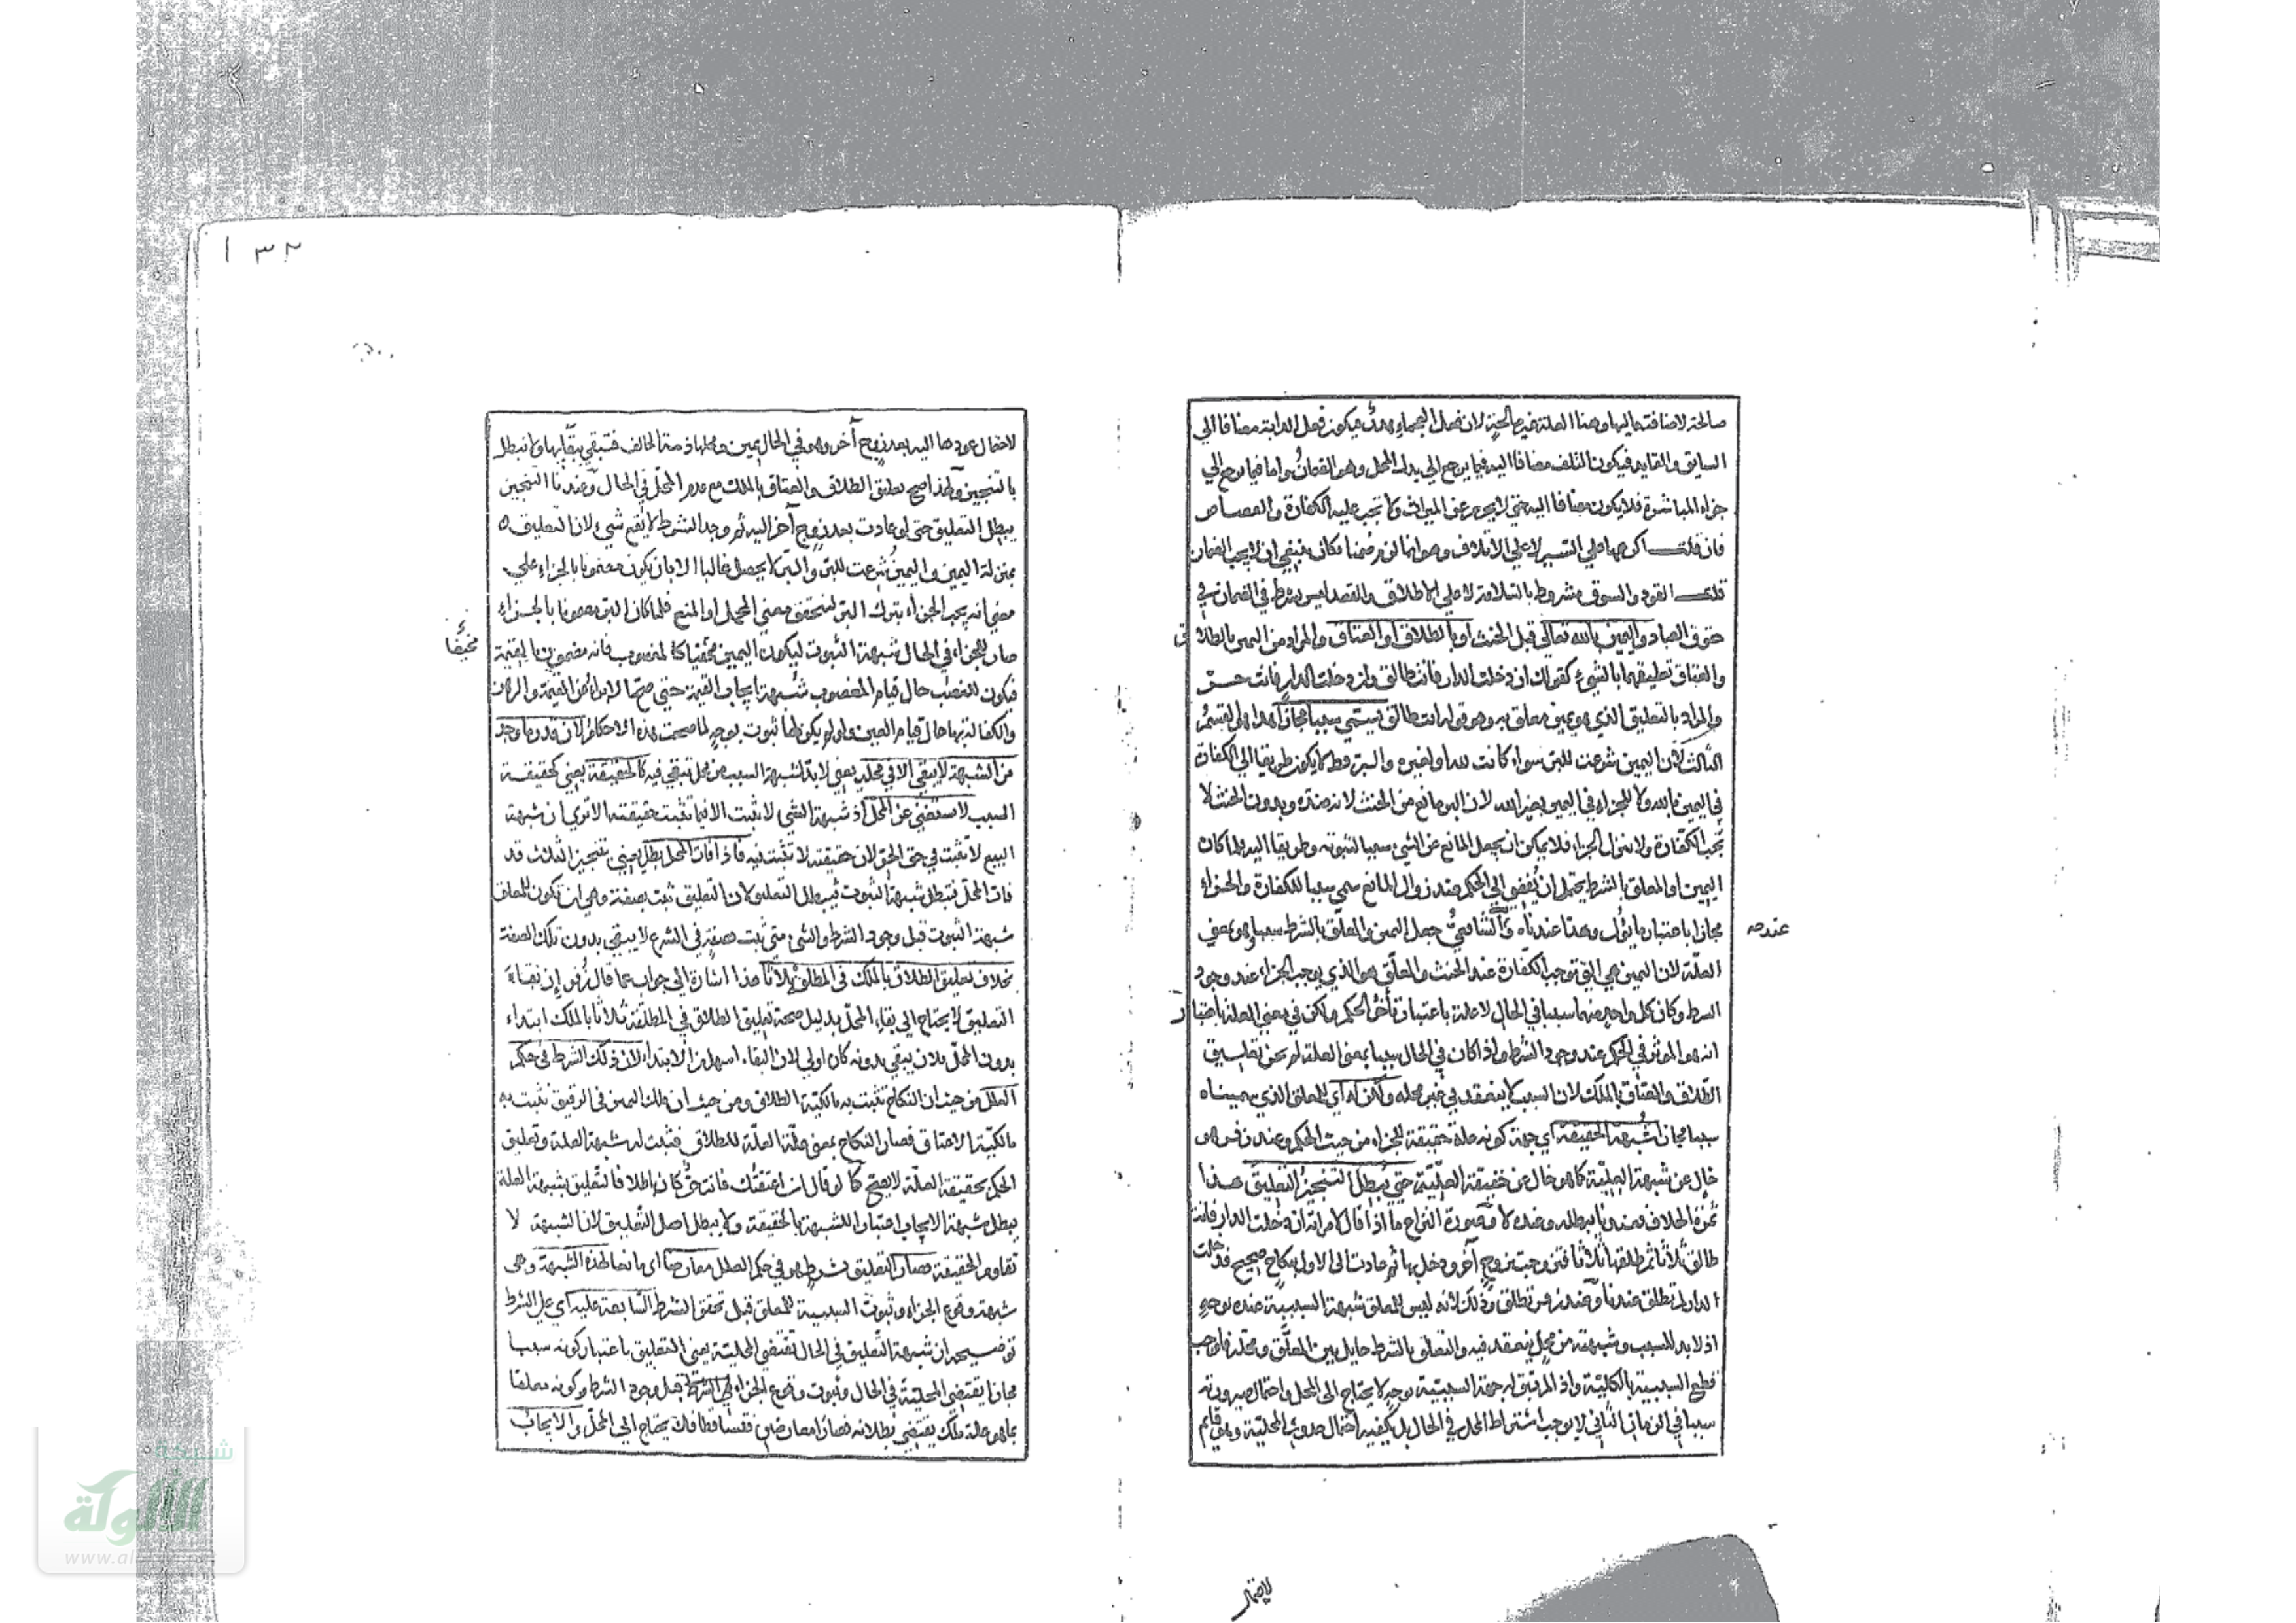 صالحة لاضافتها اليها وهذا العلة غير صالحة لان فعل العجماء هدر فيكون فعل الدابة مضافا الى
السايق والقايد فيكون التلف مضافا اليه فيما يرجع الى بدل المحل وهو الضمان واما فيما يرجع الي
جزاء المباشرة فلا يكون مضافا اليه حتى لا يحرم عن الميراث ولا تجب عليه الكفارة والقصاص
فان قلت اكرهها على السير لا علي الاتلاف وهو انما لزم ضمنا فكان ينبغي ان لا يجب الضمان
قلت القود والسوق مشروط بالسلامة لا علي الاطلاق والقصد ليس بشرط في الضمان في
حقوق العباد واليمين بالله تعالى قبل الحنث او بالطلاق او العتاق والمراد من اليمين بالطلاق
والعتاق تعليقهما بالشيء كقولك ان دخلت الدار فانت طالق وان دخلت الدار فانت حر
والمراد بالتعليق الذي هو يمين معلق به وهو قوله انت طالق يسمى سببا مجازا هذا هو القسم
الثالث لان اليمين شرعت للبر سواء كانت لله او لغيره والبر قط لا يكون طريقا الي الكفارة
في اليمين بالله ولا للجزاء في اليمين بغير الله لان البر مانع من الحنث لانه ضده وبدون الحنث لا
تجب الكفارة ولا ينزل الجزاء فلا يمكن ان يجعل المانع عن الشيء سببا لثبوته وطريقا اليه لما كان
اليمين او المعلق بالشرط يحتمل ان يفضي الي الحكم عند زوال المانع سمي سببا للكفارة والجزاء
مجازا باعتبار ما يؤل وهذا عندنا والشافعي جعل اليمين والمعلق بالشرط سببا وهو بمعني
عنده
العلة لان اليمين هي التي توجب الكفارة عند الحنث والمعلق هو الذي يوجب الجزاء عند وجود
الشرط وكان كل واحد منهما سببا في الحال لا علة باعتبار تأخر الحكم ولكن في معني العلة باعتبار
انه هو المؤثر في الحكم عند وجود الشرط واذا كان في الحال سببا بمعني العلة لم يجز تعليق
الطلاق والعتاق بالملك لان السبب لا ينعقد في غير محله ولكن له أي للمعلق الذي سميناه
سببا مجازا شبهة الحقيقة أي جهة كونه علة حقيقة للجزاء من حيث الحكم وعند زفر هو
خال عن شبهة العلية كما هو خال عن حقيقة العلية حتى يبطل التنجيز التعليق هذا
ثمرة الخلاف فعندنا يبطله وعنده لا وصورة النزاع ما اذا قال لامراته ان دخلت الدار فانت
طالق ثلاثا ثم طلقها ثلاثا فتزوجت بزوج آخر ودخل بها ثم عادت الى الاول بنكاح صحيح فدخلت
الدار لم تطلق عندنا وعند زفر تطلق وذلك لانه ليس للمعلق شبهة السببية عنده بوجه
اذ لا بد للسبب وشبهته من محل ينعقد فيه والتعلق بالشرط حايل بين المعلق ومحله فاوجب
قطع السببية بالكلية واذ لم يبق له جهة السببية بوجه لا يحتاج الى المحل واحتمال صيرورته
سببا في الزمان الثاني لا يوجب اشتراط المحل في الحال بل يكفيه احتمال حدوث المحلية وهو قايم
لاحتمال
١٣٢
لاحتمال عودها اليه بعد زوج آخر وهو في الحال يمين ومحلها ذمة الحالف فتبقي ببقايها ولا تبطل
بالتنجيز ولهذا صح تعليق الطلاق والعتاق بالملك مع عدم المحل في الحال وعندنا التنجيز
يبطل التعليق حتى لو عادت بعد زوج آخر اليه ثم وجد الشرط لا يقع شيء لان التعليق
بمنزلة اليمين واليمين شرعت للبر والبر لا يحصل غالبا الا بان يكون مضمونا بالجزاء علي
معني انه يجب الجزاء بترك البر ليتحقق معني الحمل او المنع فلما كان البر مضمونا بالجزاء
صار للجزاء في الحال شبهة الثبوت ليكون اليمين مخيفا كالمغصوب فانه مضمون بالقيمة
مخيفا
فيكون للغصب حال قيام المغصوب شبهة ايجاب القيمة حتى صح الابراء عن القيمة والرهن
والكفالة بها حال قيام العين ولو لم يكن لها ثبوت بوجه لما صحت هذه الاحكام لان قدر ما وجد
من الشبهة لا يبقي الا في محله يعني لا بد لشبهة السبب من محل تبقي فيه كالحقيقة يعني كحقيقة
السبب لا تستغني عن المحل اذ شبهة الشيء لا تثبت الا فيما تثبت حقيقته الا تري ان شبهة
البيع لا تثبت في حق الحر لان حقيقته لا تثبت فيه فاذا فات المحل بطل يعني بتنجيز الثلاث قد
فات المحل فتبطل شبهة الثبوت فيبطل التعليق لان التعليق ثبت بصفة وهي ان تكون للمعلق
شبهة الثبوت قبل وجود الشرط والشيء متى ثبت بصفة في الشرع لا يبقي بدون تلك الصفة
بخلاف تعليق الطلاق بالملك في المطلقة ثلاثا هذا اشارة الي جواب عما قال زفر إن بقاء
التعليق لا يحتاج الي بقاء المحل بدليل صحة تعليق الطلاق في المطلقة ثلاثا بالملك ابتداء
بدون المحل فلان يبقي بدونه كان اولي لان البقاء اسهل من الابتداء لان ذلك الشرط في حكم
العلل من حيث ان النكاح تثبت به مالكية الطلاق ومن حيث ان ملك اليمين في الرقيق تثبت به
مالكية الاعتاق فصار النكاح بمعني علة العلة للطلاق فثبت له شبهة العلة وتعليق
الحكم بحقيقة العلة لا يصح كما لو قال ان اعتقتك فانت حر كان باطلا فالتعليق بشبهة العلة
يبطل شبهة الايجاب اعتبارا للشبهة بالحقيقة ولا يبطل اصل التعليق لان الشبهة لا
تقاوم الحقيقة فصار التعليق بشرط هو في حكم العلل معارضا اي مانعا لهذه الشبهة وهي
شبهة وقوع الجزاء وثبوت السببية للمعلق قبل تحقق الشرط السابقة عليه أي علي الشرط
توضيحه ان شبهة التعليق في الحال تقتضي المحلية يعني التعليق باعتبار كونه سببا
مجازا يقتضي المحلية في الحال وثبوت وقوع الجزاء قبل وجود الشرط وكونه معلقا
بما هو علة ملك يقتضي بطلانه فصارا معارضين فتساقطا فلا يحتاج الي المحل والايجاب
شبكة
الألوكة